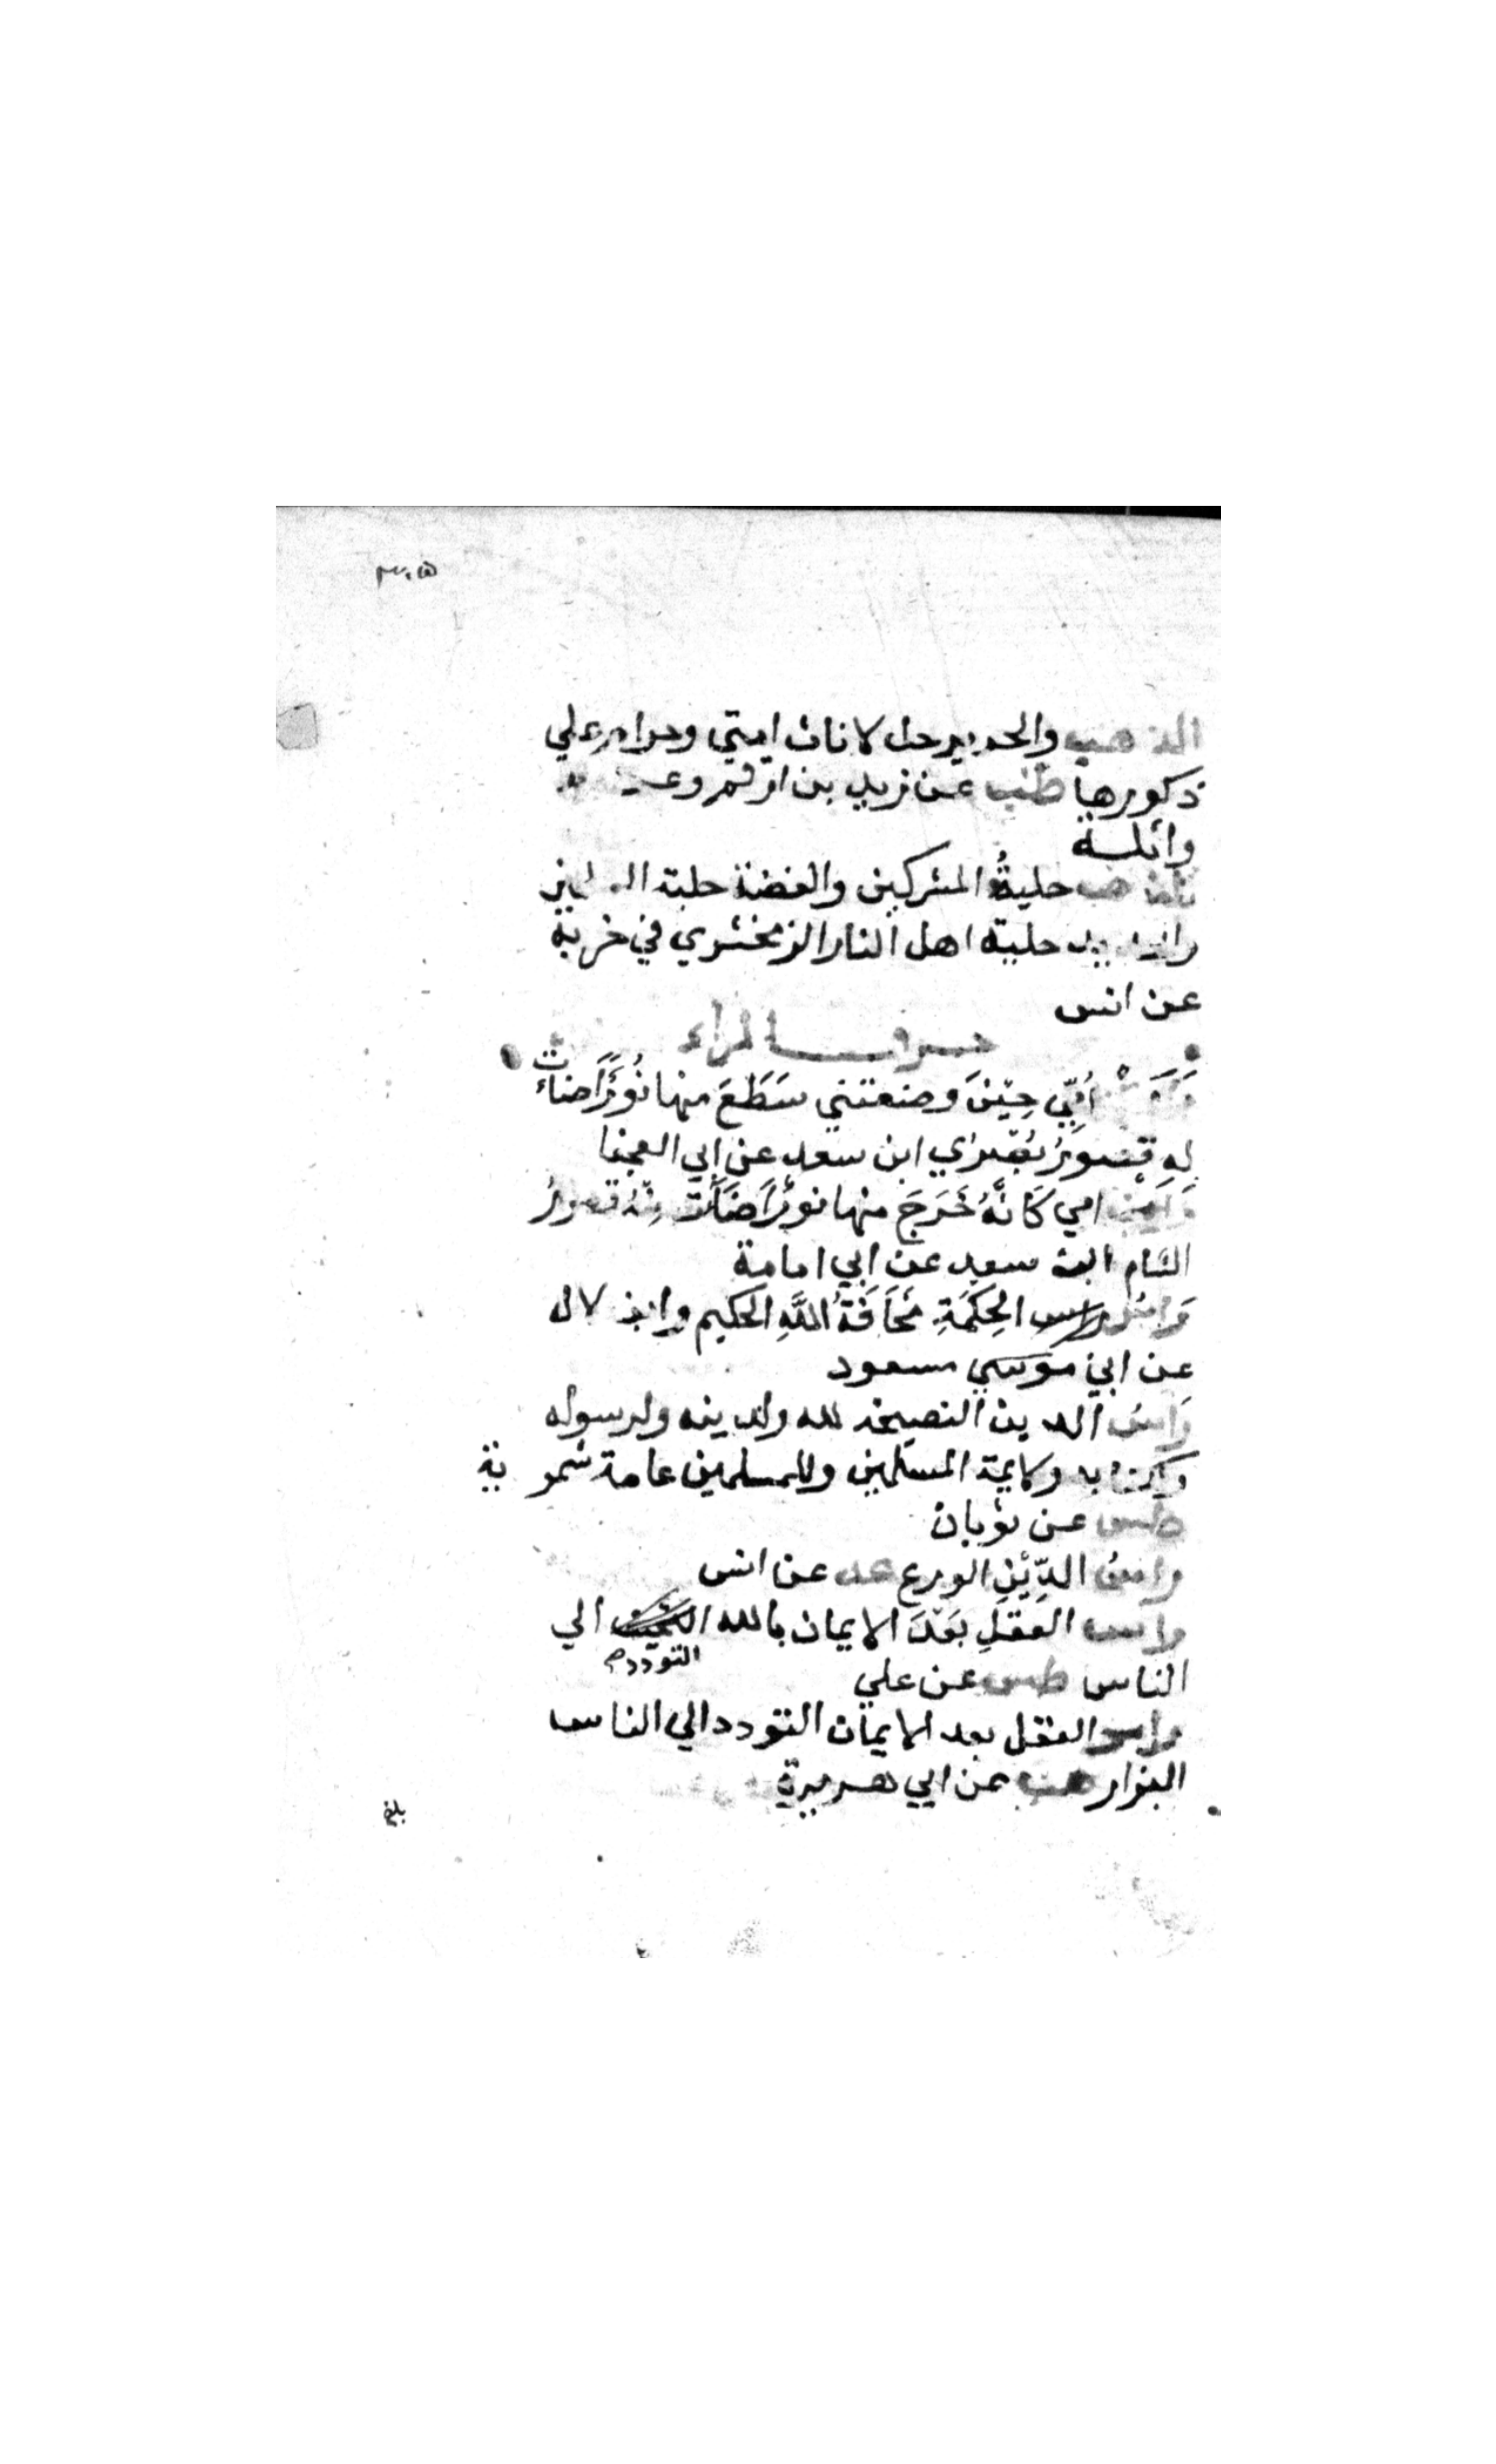 الذهب والحرير حل لاناث امتي وحرام علي
ذكورها طب عن زيد بن ارقم وعن
واثلة
الذهب حلية المشركين والفضة حلية
والحديد حلية اهل النار الزمخشري في خريه
عن انس
حرف الراء
رَأَتْ اُمِّي حِيْنَ وضعتني سَطَعَ منها نُورٌ اَضاءَت
له قصورُ بُصْرٰي ابن سعد عن ابي العجفا
رَاَتْ امي كَاَنَّهُ خَرَجَ منها نورٌ اَضَاَتْ مِنْهُ قصورُ
الشام ابن سعد عن ابي امامة
رَاسُ الحِكْمَةِ مَخَافَةُ اللّٰهِ الحكيم وابن لال
عن ابن مسعود
رَاسُ الدين النصيحة لله ولدينه ولرسوله
ولكتابه ولايمة المسلمين وللمسلمين عامة سموية
طس عن ثوبان
راسُ الدِّيْنِ الورع عد عن انس
راس العَقْلِ بَعْدَ الايمان بالله الي
التودد صح
الناس طس عن علي
راس العقل بعد الايمان التودد الي الناس
البزار هب عن ابي هريرة
بلغ